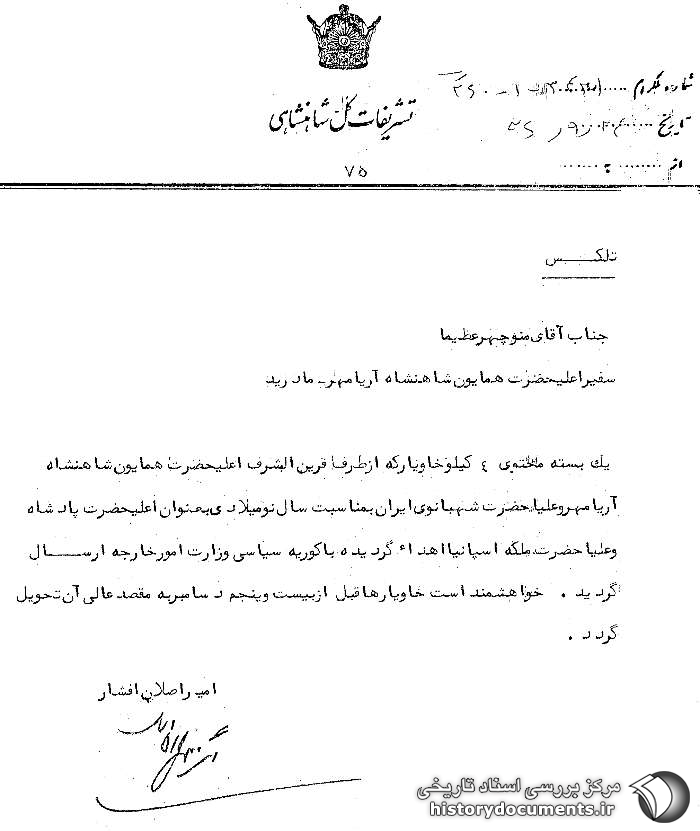 تشریفات کل شاهنشاهی
شماره تلگرام
تاریخ
از ........ به ........
۷۵
تلکس
جناب آقای منوچهر عظیما
سفیر اعلیحضرت همایون شاهنشاه آریامهر ـ مادرید
یك بسته محتوی ٤ کیلو خاویار که از طرف قرین الشرف اعلیحضرت همایون شاهنشاه
آریامهر و علیاحضرت شهبانوی ایران بمناسبت سال نو میلادی بعنوان اعلیحضرت پادشاه
و علیاحضرت ملکه اسپانیا اهداء گردیده با کوریه سیاسی وزارت امور خارجه ارسال
گردید . خواهشمند است خاویارها قبل از بیست و پنجم دسامبر به مقصد عالی آن تحویل
گردد .
امیر اصلان افشار
مرکز بررسی اسناد تاریخی
historydocuments.ir